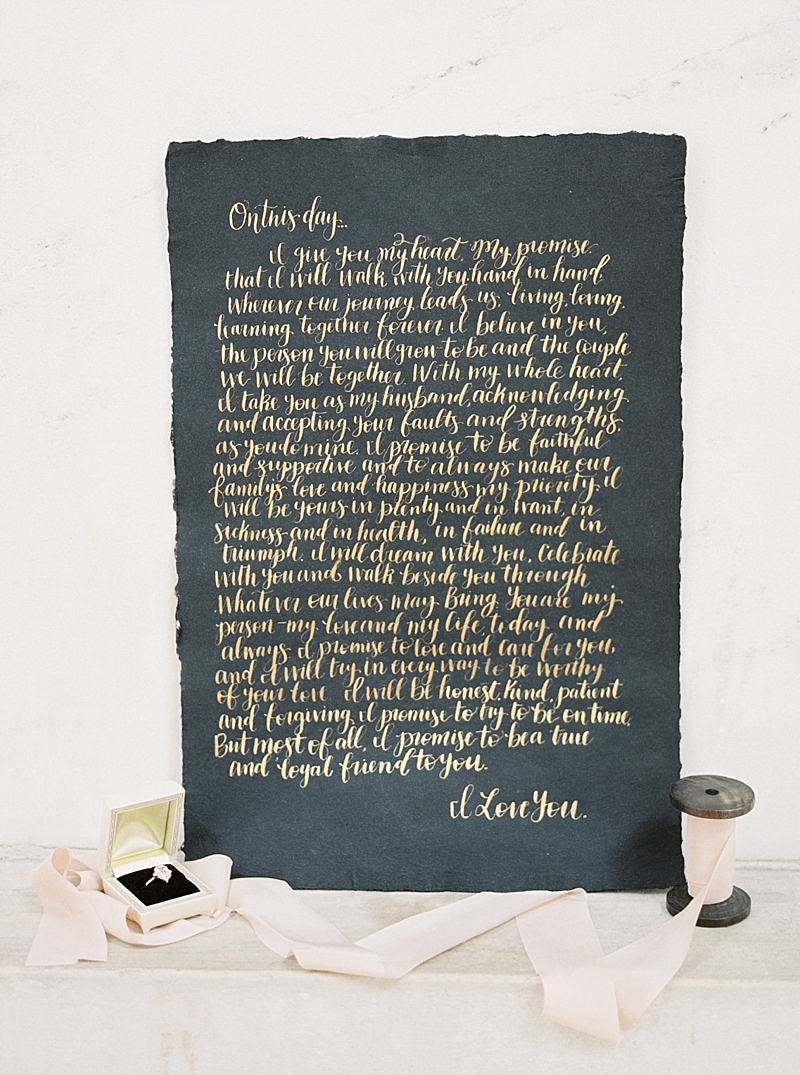 On this day...
I give you my heart. My promise
that I will walk with you hand in hand
wherever our journey leads us, living, loving,
learning, together forever. I believe in you,
the person you will grow to be and the couple
we will be together. With my whole heart,
I take you as my husband, acknowledging
and accepting your faults and strengths,
as you do mine. I promise to be faithful
and supportive and to always make our
family's love and happiness my priority. I
will be yours in plenty and in want, in
sickness and in health, in failure and in
triumph. I will dream with you, celebrate
with you and walk beside you through
whatever our lives may bring. You are my
person-my love and my life, today and
always. I promise to love and care for you,
and I will try in every way to be worthy
of your love. I will be honest, kind, patient
and forgiving. I promise to try to be on time.
But most of all, I promise to be a true
and loyal friend to you.
I Love You.